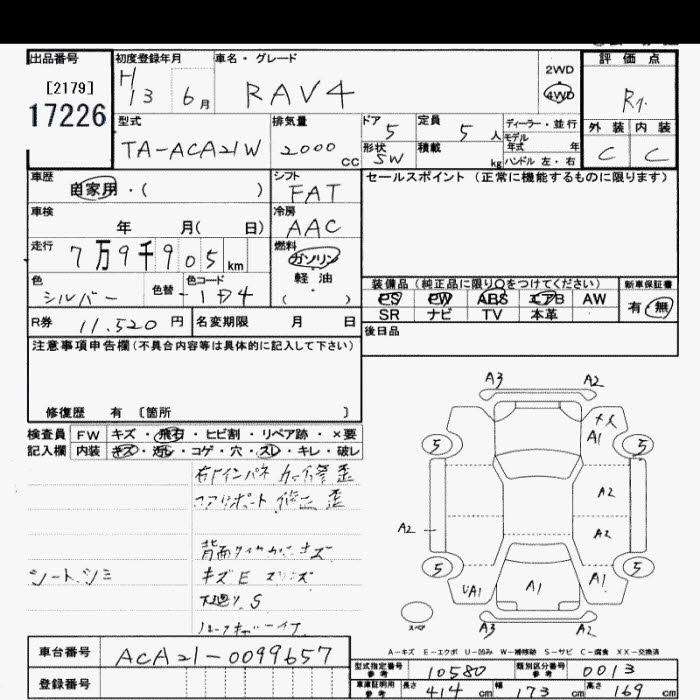 出品番号 初度登録年月 車名・グレード 評価点
[2179] H 13 6月 RAV4 2WD 4WD R
17226
型式 排気量 ドア 定員 ディーラー・並行 外装 内装
TA-ACA21W 2000 CC 5 5人 モデル年式 年 C C
形状 SW 積載 kg ハンドル 左・右
車歴 シフト セールスポイント (正常に機能するものに限ります)
自家用・( ) FAT
車検 冷房
年 月( 日) AAC
走行 燃料
7万9千905km ガソリン
軽油
色 色替 色コード ( )
シルバー - 1D4
装備品 (純正品に限り○をつけてください) 新車保証書
PS PW ABS エアB AW 有・無
SR ナビ TV 本革
R券 11,520円 名変期限 月 日 後日品
注意事項申告欄(不具合内容等は具体的に記入して下さい)
修復歴 有 〔箇所 〕
検査員 FW キズ・飛石・ヒビ割・リペア跡・×要
記入欄 内装 キズ・汚レ・コゲ・穴・スレ・キレ・破レ
シートシミ
キズE
S
A3 A2
A1
5 5
A2
A2 A2
5 5
UA1 A1 A1
A3 A2
スペア
A-キズ E-エクボ U-凹み W-補修跡 S-サビ C-腐食 XX-交換済
車台番号 ACA21-0099657
型式指定番号 参考 10580 類別区分番号 参考 0013
登録番号
車庫証明用 参考 長さ 414cm 幅 173cm 高さ 169cm